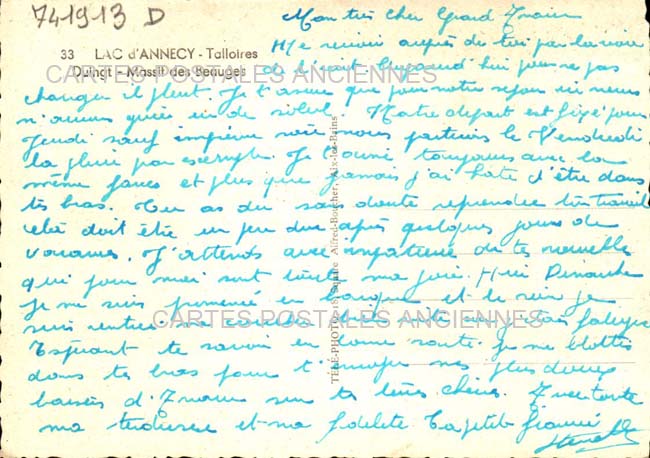 741913 D
33 LAC d'ANNECY - Talloires
Duingt - Massif des Beauges
CARTES POSTALES ANCIENNES
Mon très cher Grand
Me revoici auprès de toi par la voie
de l'écrit aujourd'hui pour ne pas
changer il pleut. Je t'assure que pour notre séjour ici nous
n'avons guère eu de soleil. Notre départ est fixé pour
Jeudi sauf imprévu nous partirons le Vendredi
la pluie par exemple. Je toujours avec la
même force et plus que jamais j'ai hâte d'être dans
tes bras. Tu as du sans doute reprendre ton travail
cela doit être un peu dur après quelques jours de
vacances. J'attends avec impatience de tes nouvelles
qui pour moi sont toute ma joie. Hier Dimanche
je me suis promenée en barque et le soir je
suis rentrée me coucher très tôt car j'étais fatiguée
CARTES POSTALES ANCIENNES
Espérant te savoir en bonne santé je me blottis
dans tes bras pour t'envoyer mes plus doux
baisers d' sur tes lèvres chéries. toute
ma tendresse et ma fidélité Ta petite
TELE-PHOTO Alfred-Boucher, Aix-les-Bains